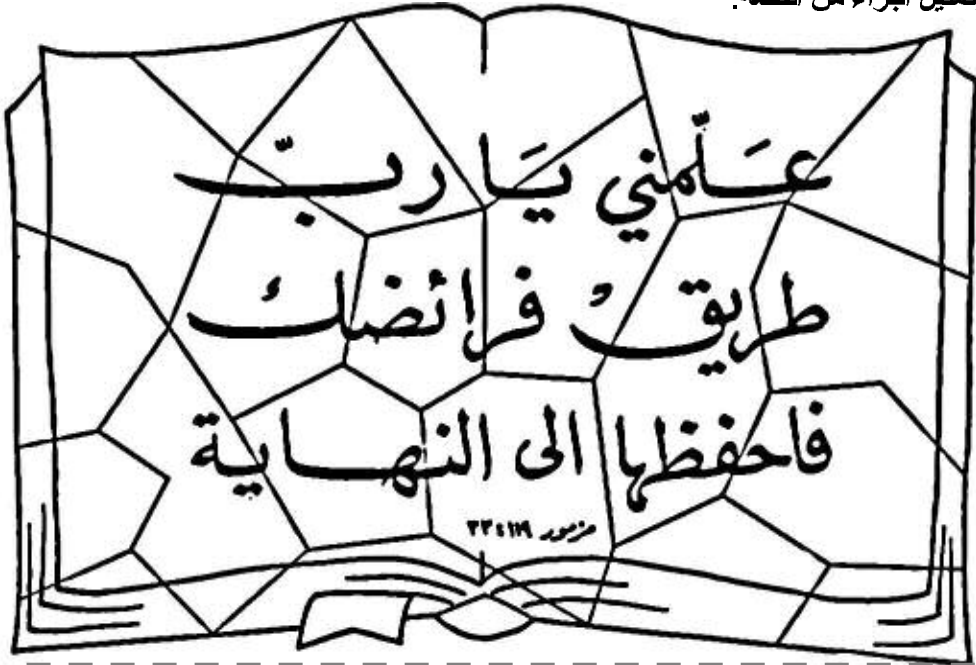 أجزاء من
عَلّمني يَا ربّ
طريقْ فرائضك
فاحفظها الى النهاية
مزمور ١١٩:٣٣